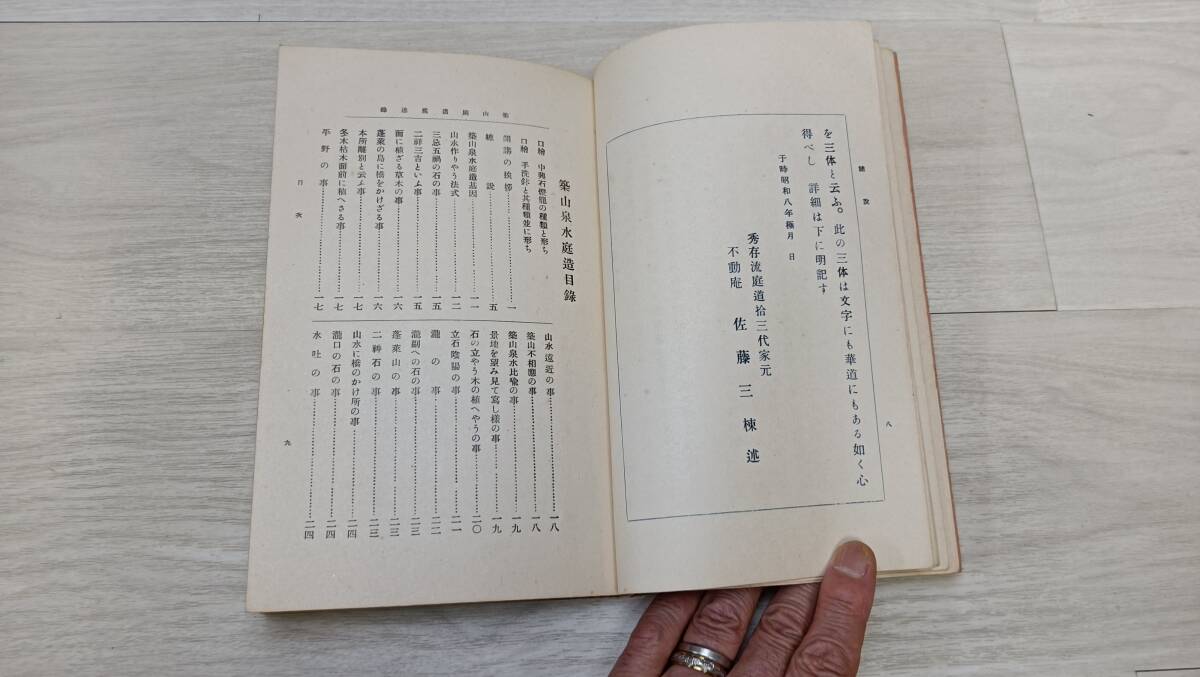 總說
八
を三体と云ふ。此の三体は文字にも華道にもある如く心
得べし 詳細は下に明記す
于時昭和八年極月 日
秀存流庭道拾三代家元
不動庵 佐藤三棟述
築山泉水庭造目錄
口繪 中興石燈籠の種類と形ち
口繪 手洗鉢と其種類並に形ち
開講の挨拶………一
總說………五
築山泉水庭造基因………一一
山水作りやう法式………一二
三忌五禍の石の事………一五
二神三吉といふ事………一五
面に植ざる草木の事………一六
蓬萊の島に橋をかけざる事………一六
本所離別と云ふ事………一七
冬木枯木面前に植へさる事………一七
平野の事………一七
山水遠近の事………一八
築山不相應の事………一八
築山泉水比喩の事………一九
景地を望み見て寫し樣の事………一九
石の立やう木の植へやうの事………二〇
立石陰陽の事………二一
瀧の事………二二
瀧副への石の事………二三
蓬萊山の事………二三
二神石の事………二三
山水に橋のかけ所の事………二四
瀧口の石の事………二四
水吐の事………二四
目次
九